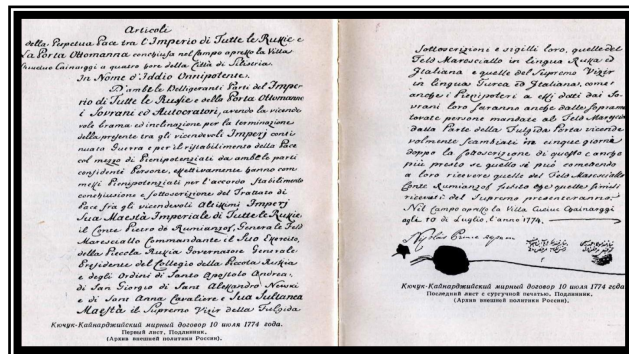 Articoli
della Perpetua Pace tra l'Imperio di Tutte le Russie e
La Porta Ottomanna conchiusa nel Campo apresso la Villa
Cuciuc Cainargi a quatro hore della Città di Silistria.
In Nome d'Iddio Onnipotente.
D'ambe le Belligeranti Parti del Impe-
rio di Tutte le Russie e della Porta Ottomanna
i Sovrani ed Autocratori, avendo la vicende-
vole brama ed inclinazione per la terminazione
della presente tra gli vicendevoli Imperj conti-
nuata Guerra e per il ristabilimento della Pace
col mezzo di Plenipotenziati da ambe le parti
confidenti Persone, effettivamente hanno com-
messi Plenipotenziati per l'accordo, stabilimento
conchiusione e sottoscrizione del Trattato di
Pace fra gli vicendevoli Altissimi Imperj
Sua Maestà Imperiale di Tutte le Russie
il Conte Pietro de Rumianzof, Generale Feld
Maresciallo Commandante il Suo Esercito,
della Piccola Russia Governatore Generale
Presidente del Collegio della Piccola Russia
e degli Ordini di Santo Apostolo Andrea,
di San Giorgio di Sant Alessandro Newski
e di Sant Anna Cavaliere e Sua Sultanea
Maestà il Supremo Vizir della Fulgida
Кючук-Кайнарджийский мирный договор 10 июля 1774 года.
Первый лист. Подлинник.
(Архив внешней политики России).
Sottoscrizione e sigilli loro, quelle del
Feld Maresciallo in lingua Russa ed
Italiana e quelle del Supremo Vizir
in lingua Turca ed Italiana, come
anche i Plenipoteri a essi dati dai So-
vrani loro saranno anche dalle sopramen-
tovate persone mandate al Feld Maresciallo
dalla Parte della Fulgida Porta vicende
volmente scambiati in cinque giorni
doppo la sottoscrizione di questo e anche
più presto se quello si può concedendo
a loro ricevere quelle del Feld Maresciallo
Conte Rumianzof subito che quelle simili
ricevuti del Supremo presenteranno.
Nel Campo apresso la Villa Cuciuc Cainargi
agli 10 di Luglio, l'anno 1774.
Кючук-Кайнарджийский мирный договор 10 июля 1774 года.
Последний лист с сургучной печатью. Подлинник.
(Архив внешней политики России).